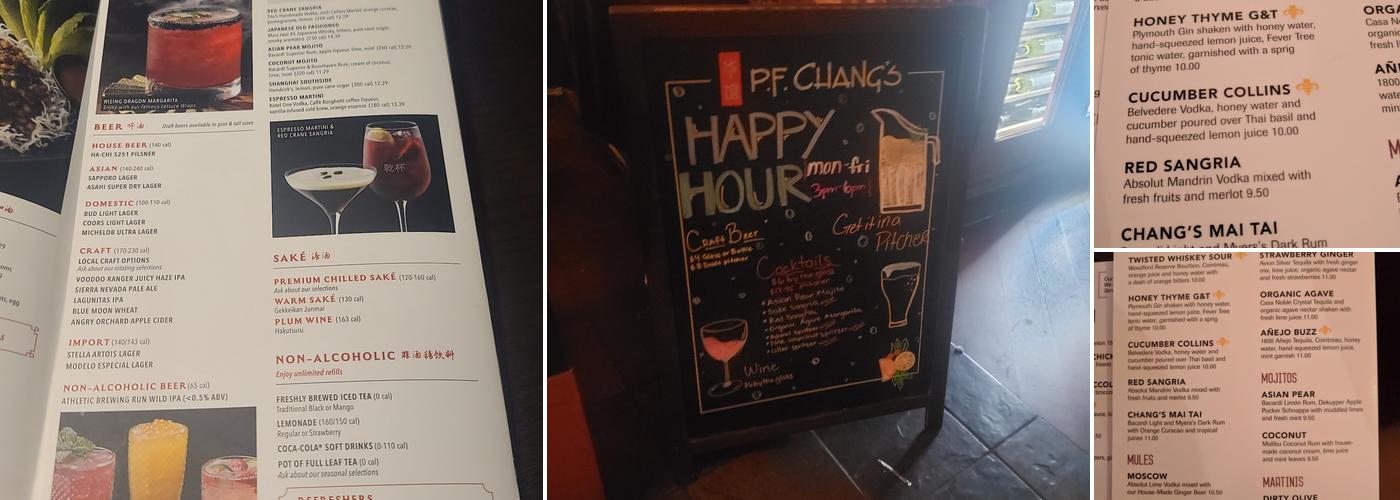 RISING DRAGON MARGARITA
Enjoy with our famous Lettuce Wraps
BEER
Draft beers available in pint & tall sizes
HOUSE BEER (140 cal)
HA·CHI 5251 PILSNER
ASIAN (140-240 cal)
SAPPORO LAGER
ASAHI SUPER DRY LAGER
DOMESTIC (100-110 cal)
BUD LIGHT LAGER
COORS LIGHT LAGER
MICHELOB ULTRA LAGER
CRAFT (170-230 cal)
LOCAL CRAFT OPTIONS
Ask about our rotating selections
VOODOO RANGER JUICY HAZE IPA
SIERRA NEVADA PALE ALE
LAGUNITAS IPA
BLUE MOON WHEAT
ANGRY ORCHARD APPLE CIDER
IMPORT (140/143 cal)
STELLA ARTOIS LAGER
MODELO ESPECIAL LAGER
NON-ALCOHOLIC BEER (65 cal)
ATHLETIC BREWING RUN WILD IPA (<0.5% ABV)
RED CRANE SANGRIA
Tito's Handmade Vodka, Josh Cellars Merlot, orange curacao,
pomegranate, lemon (260 cal) 12.29
JAPANESE OLD FASHIONED
Mars Iwai 45 Japanese Whisky, bitters, pure cane sugar,
smoky aromatics (230 cal) 14.39
ASIAN PEAR MOJITO
Bacardi Superior Rum, apple liqueur, lime, mint (260 cal) 12.29
COCONUT MOJITO
Bacardi Superior & RumHaven Rum, cream of coconut,
lime, mint (320 cal) 11.29
SHANGHAI SOUTHSIDE
Hendrick's, lemon, pure cane sugar (300 cal) 12.29
ESPRESSO MARTINI
Ketel One Vodka, Caffè Borghetti coffee liqueur,
vanilla-infused cold brew, orange essence (180 cal) 13.39
ESPRESSO MARTINI &
RED CRANE SANGRIA
乾杯
SAKÉ 清酒
PREMIUM CHILLED SAKÉ (120-160 cal)
Ask about our selections
WARM SAKÉ (130 cal)
Gekkeikan Junmai
PLUM WINE (163 cal)
Hakutsuru
NON-ALCOHOLIC
Enjoy unlimited refills
FRESHLY BREWED ICED TEA (0 cal)
Traditional Black or Mango
LEMONADE (160/150 cal)
Regular or Strawberry
COCA-COLA® SOFT DRINKS (0-110 cal)
POT OF FULL LEAF TEA (0 cal)
Ask about our seasonal selections
REFRESHERS
P.F. CHANG'S
HAPPY
HOUR
mon-fri
3pm-6pm
Get it in a
Pitcher
Craft Beer
Cocktails
$6 by the glass
Asian Pear Mojito
Red Sangria
Organic Agave Margarita
Wine
HONEY THYME G&T
Plymouth Gin shaken with honey water,
hand-squeezed lemon juice, Fever Tree
tonic water, garnished with a sprig
of thyme 10.00
CUCUMBER COLLINS
Belvedere Vodka, honey water and
cucumber poured over Thai basil and
hand-squeezed lemon juice 10.00
RED SANGRIA
Absolut Mandrin Vodka mixed with
fresh fruits and merlot 9.50
CHANG'S MAI TAI
TWISTED WHISKEY SOUR
Woodford Reserve Bourbon, Cointreau,
orange juice and honey water with
a dash of orange bitters 10.00
HONEY THYME G&T
Plymouth Gin shaken with honey water,
hand-squeezed lemon juice, Fever Tree
tonic water, garnished with a sprig
of thyme 10.00
CUCUMBER COLLINS
Belvedere Vodka, honey water and
cucumber poured over Thai basil and
hand-squeezed lemon juice 10.00
RED SANGRIA
Absolut Mandrin Vodka mixed with
fresh fruits and merlot 9.50
CHANG'S MAI TAI
Bacardi Light and Myers's Dark Rum
with Orange Curacao and tropical
juices 11.00
MULES
MOSCOW
Absolut Lime Vodka mixed with
our House-Made Ginger Beer 10.50
STRAWBERRY GINGER
Avion Silver Tequila with fresh ginger
mix, lime juice, organic agave nectar
and fresh strawberries 11.00
ORGANIC AGAVE
Casa Noble Crystal Tequila and
organic agave nectar shaken with
fresh lime juice 11.00
AÑEJO BUZZ
1800 Añejo Tequila, Cointreau, honey
water, hand-squeezed lemon juice,
mint garnish 11.00
MOJITOS
ASIAN PEAR
Bacardi Limón Rum, Dekuyper Apple
Pucker Schnapps with muddled limes
and fresh mint 9.50
COCONUT
Malibu Coconut Rum with house-
made coconut cream, lime juice
and mint leaves 9.50
MARTINIS
DIRTY OLIVE